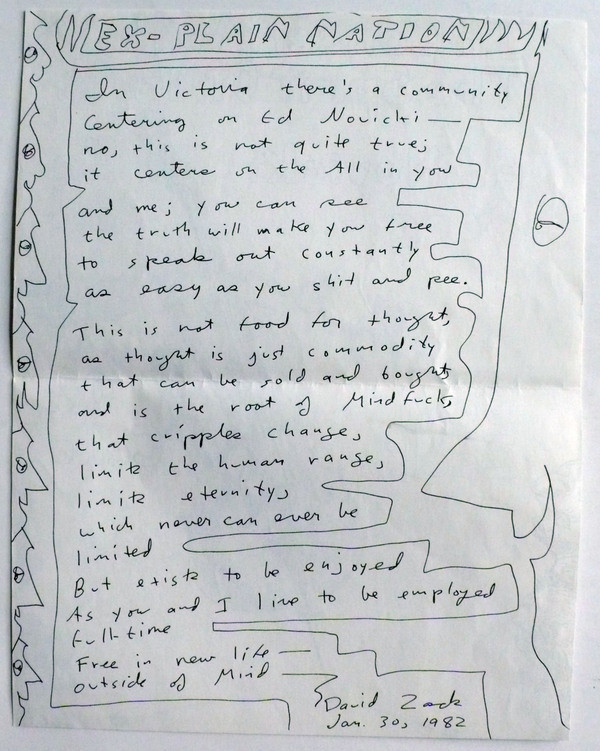 EX-PLAIN NATION
In Victoria there's a community
Centering on Ed Novicki —
no, this is not quite true;
it centers on the All in you
and me; you can see
the truth will make you free
to speak out constantly
as easy as you shit and pee.
This is not food for thought,
as thought is just commodity
that can be sold and bought
and is the root of Mindfuck,
that cripples change,
limits the human range,
limits eternity,
which never can ever be
limited
But exists to be enjoyed
As you and I live to be employed
full-time
Free in new life —
outside of Mind —
David Zack
Jan. 30, 1982